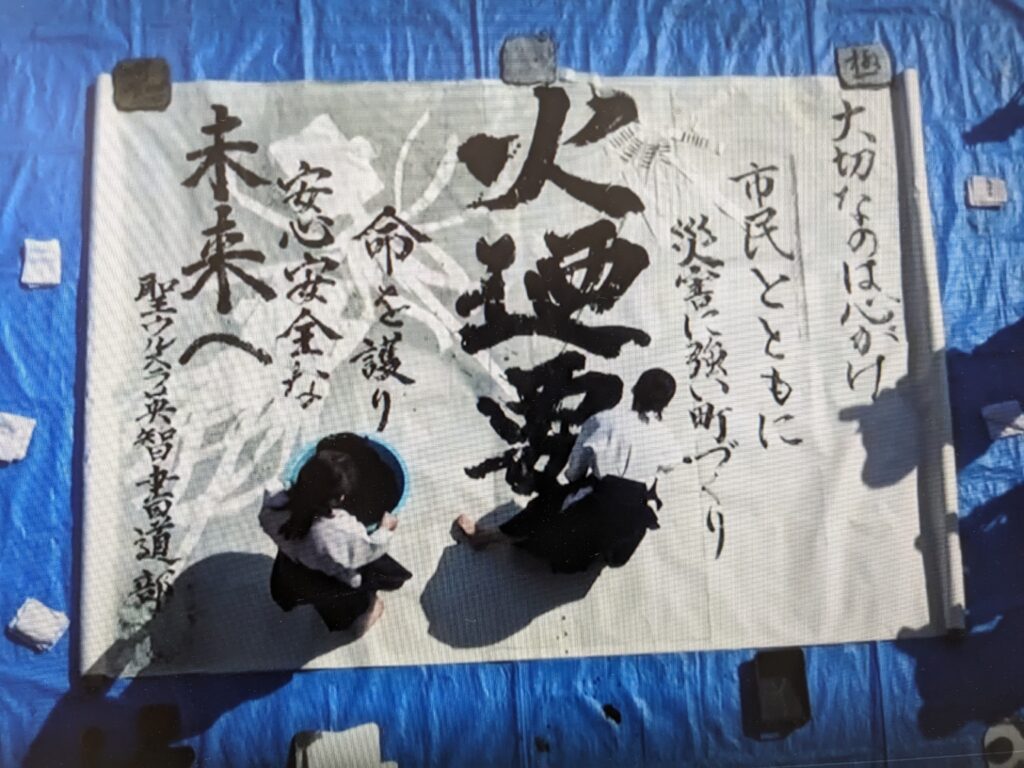 大切なのは心がけ
市民とともに
災害に強い町づくり
火迺要
命を護り
安心安全な
未来へ
聖ウルスラ英智書道部